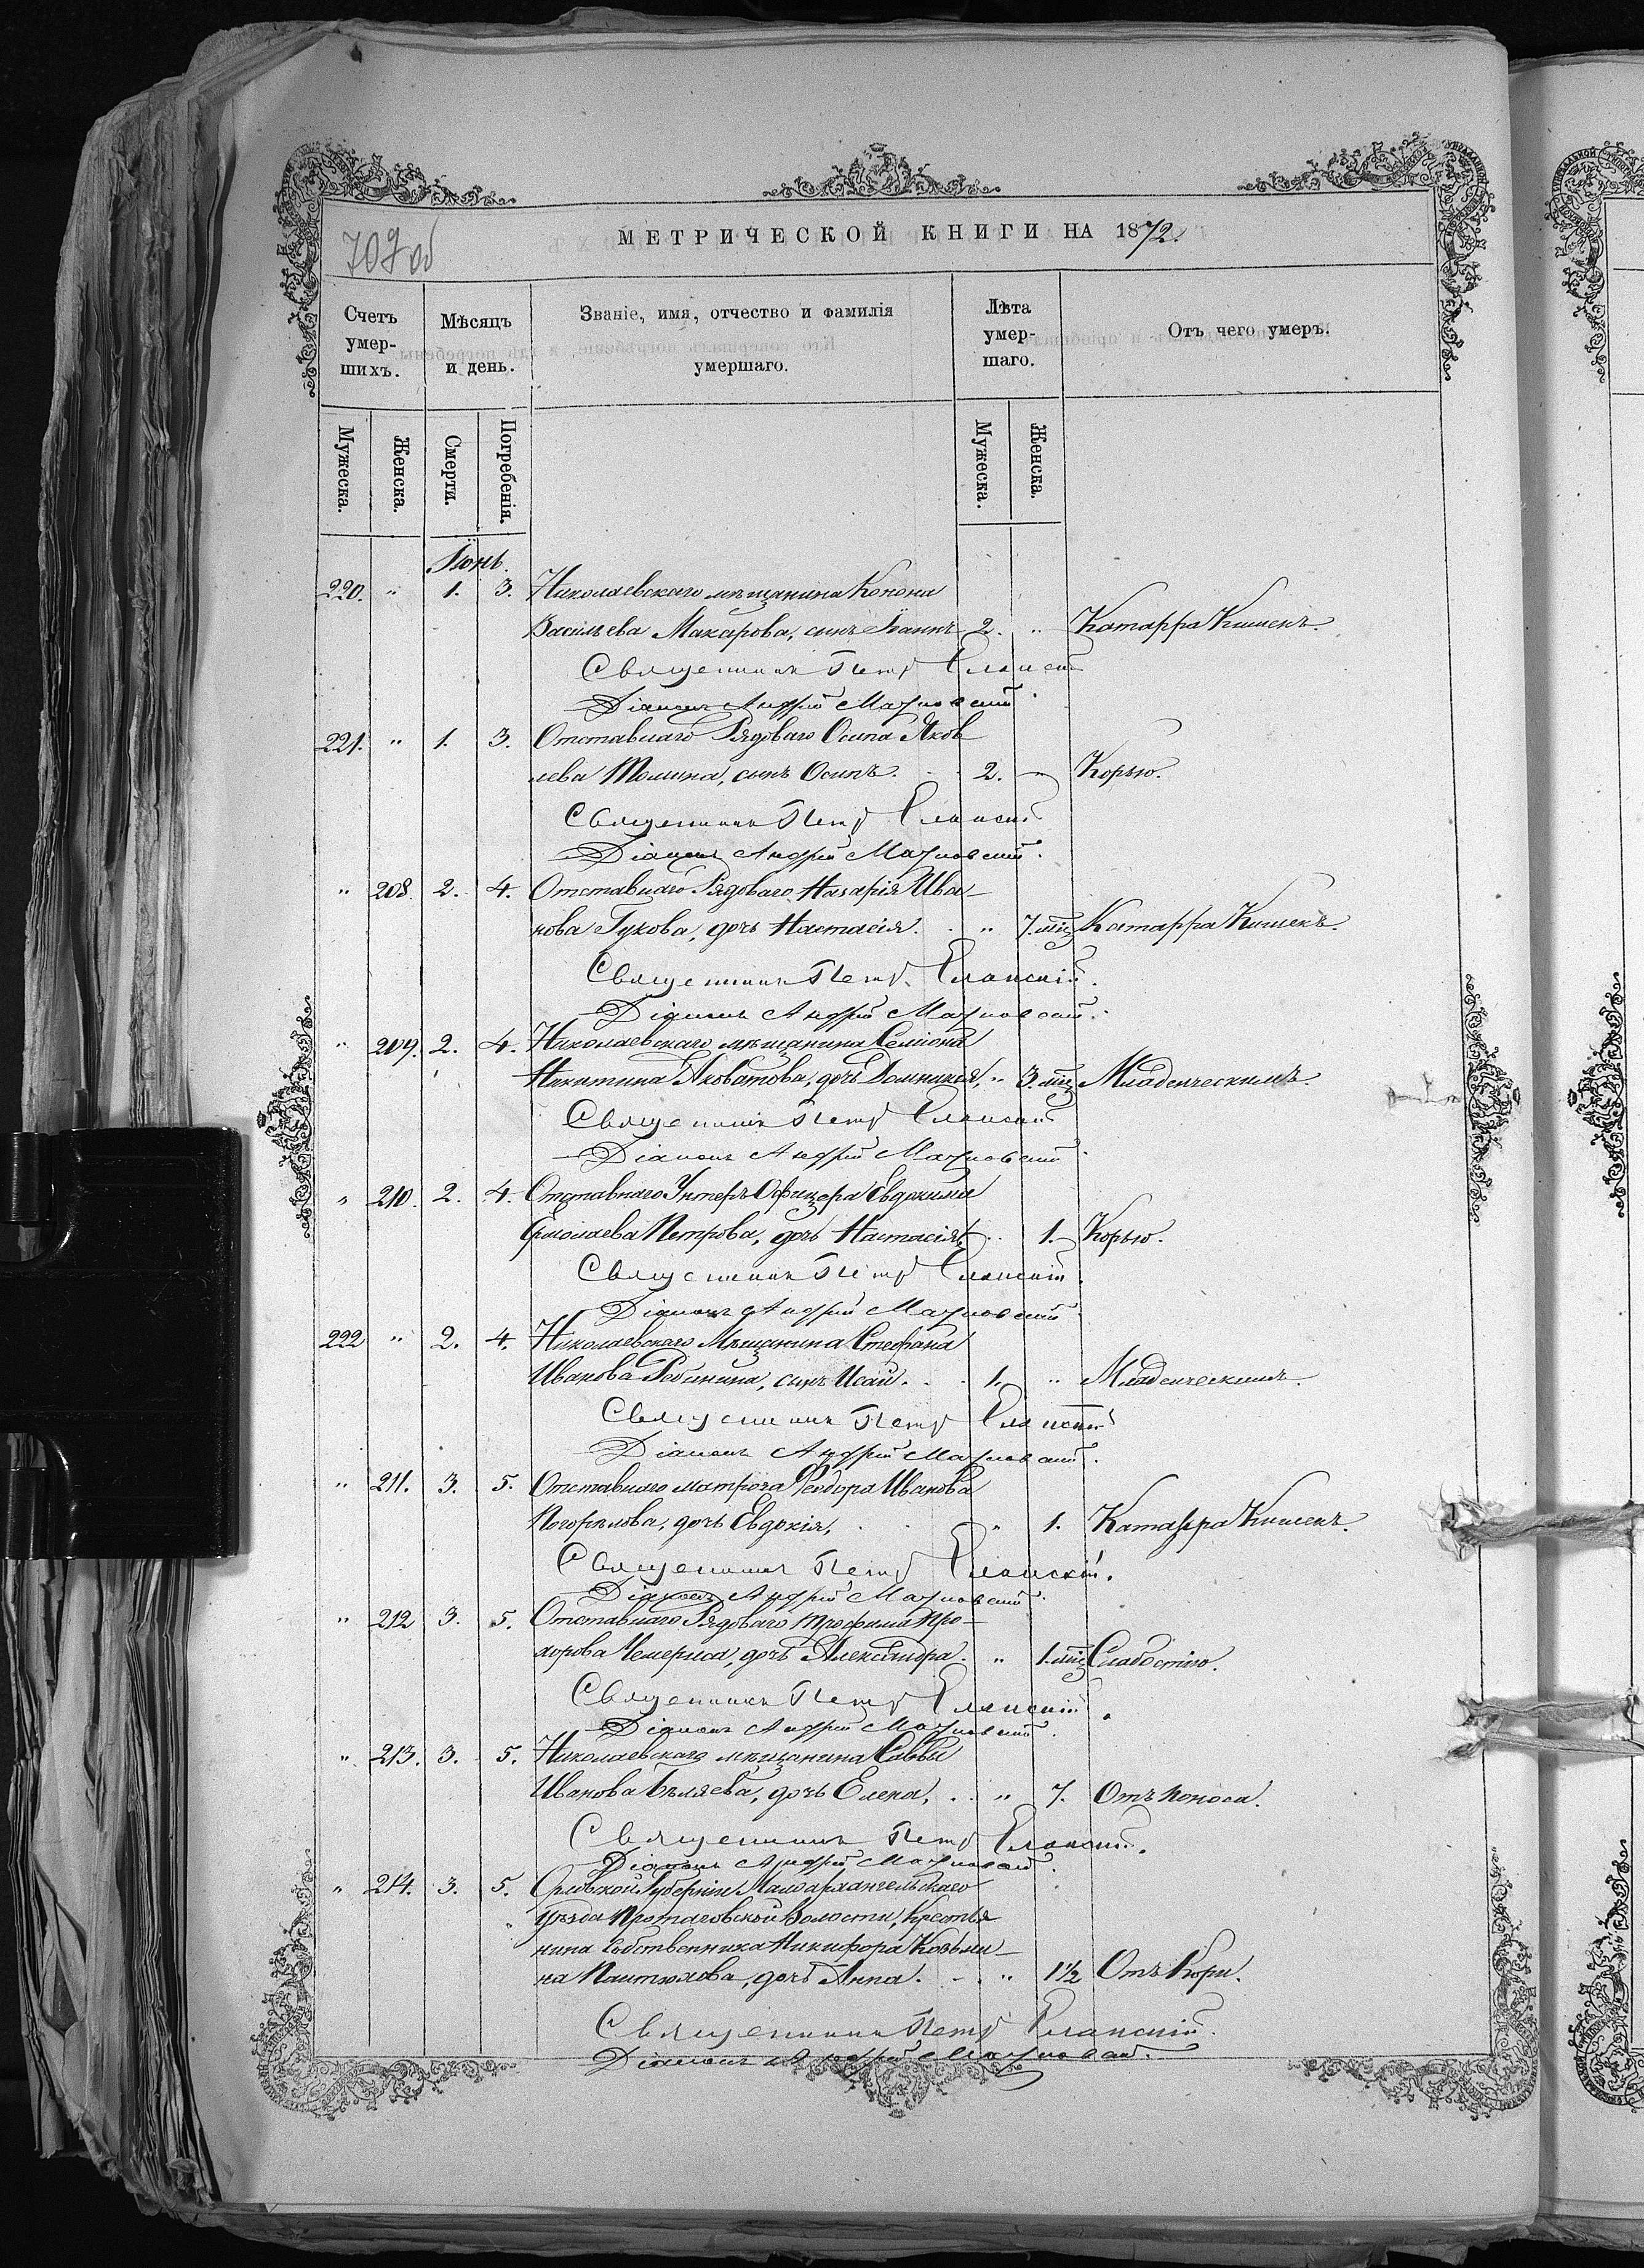 709 об
МЕТРИЧЕСКОЙ КНИГИ НА 1872.
Счетъ умер- шихъ.
Мѣсяцъ и день.
Званіе, имя, отчество и фамилія умершаго.
Лѣта умер- шаго.
Отъ чего умеръ.
Мужеска. Женска. Смерти. Погребенія. Мужеска. Женска.
Іюнь.
220. " 1. 3. Николаевскаго мѣщанина Конона
Васильева Макарова, сынъ Іоаннъ 2. " Катарра Кишекъ.
Священникъ Петръ Еланскій
Діаконъ Андрей
221. " 1. 3. Отставнаго Рядоваго Осипа Яков
лева Томина, сынъ Осипъ. 2. " Корью.
Священникъ Петръ Еланскій
Діаконъ Андрей
" 208. 2. 4. Отставнаго Рядоваго Назарія Ива-
нова Гукова, дочь Настасія. " 7. мц Катарра Кишекъ.
Священникъ Петръ Еланскій.
Діаконъ Андрей
" 209. 2. 4. Николаевскаго мѣщанина Семіона
Никитина дочь Домникія, " 3. мц Младенческимъ.
Священникъ Петръ Еланскій
Діаконъ Андрей
" 210. 2. 4. Отставнаго Унтеръ Офицера Евдокима
Ермолаева Петрова, дочь Настасія, " 1. Корью.
Священникъ Петръ Еланскій.
Діаконъ Андрей
222 " 2. 4. Николаевскаго Мѣщанина Стефана
Иванова Рябинина, сынъ Исай. 1. " Младенческимъ.
Священникъ Петръ Еланскій
Діаконъ Андрей
" 211. 3. 5. Отставнаго матроза Феодора Иванова
Погорѣлова, дочь Евдокія, " 1. Катарра Кишекъ.
Священникъ Петръ Еланскій.
Діаконъ Андрей
" 212 3. 5. Отставнаго Рядоваго Трофима Про-
хорова Чемериса, дочь Александра. " 1. мц Слабостію.
Священникъ Петръ Еланскій.
Діаконъ Андрей
" 213. 3. 5. Николаевскаго мѣщанина Саввы
Иванова Бѣляева, дочь Елена, " 7. Отъ поноса.
Священникъ Петръ Еланскій.
Діаконъ Андрей
" 214. 3. 5. Орловской Губерніи Малоархангельскаго
Уѣзда Протасовской Волости, крестья
нина собственника Никифора Козьми-
на Пантюхова, дочь Анна. " 1½ Отъ Кори.
Священникъ Петръ Еланскій.
Діаконъ Андрей